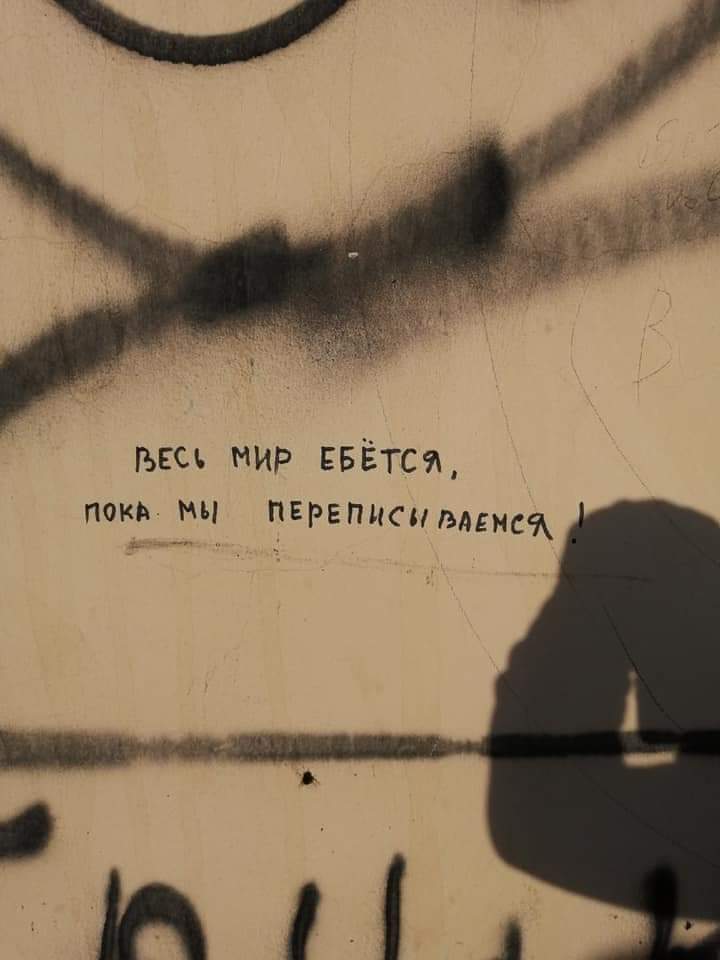 ВЕСЬ МИР ЕБЁТСЯ,
ПОКА МЫ ПЕРЕПИСЫВАЕМСЯ!
В